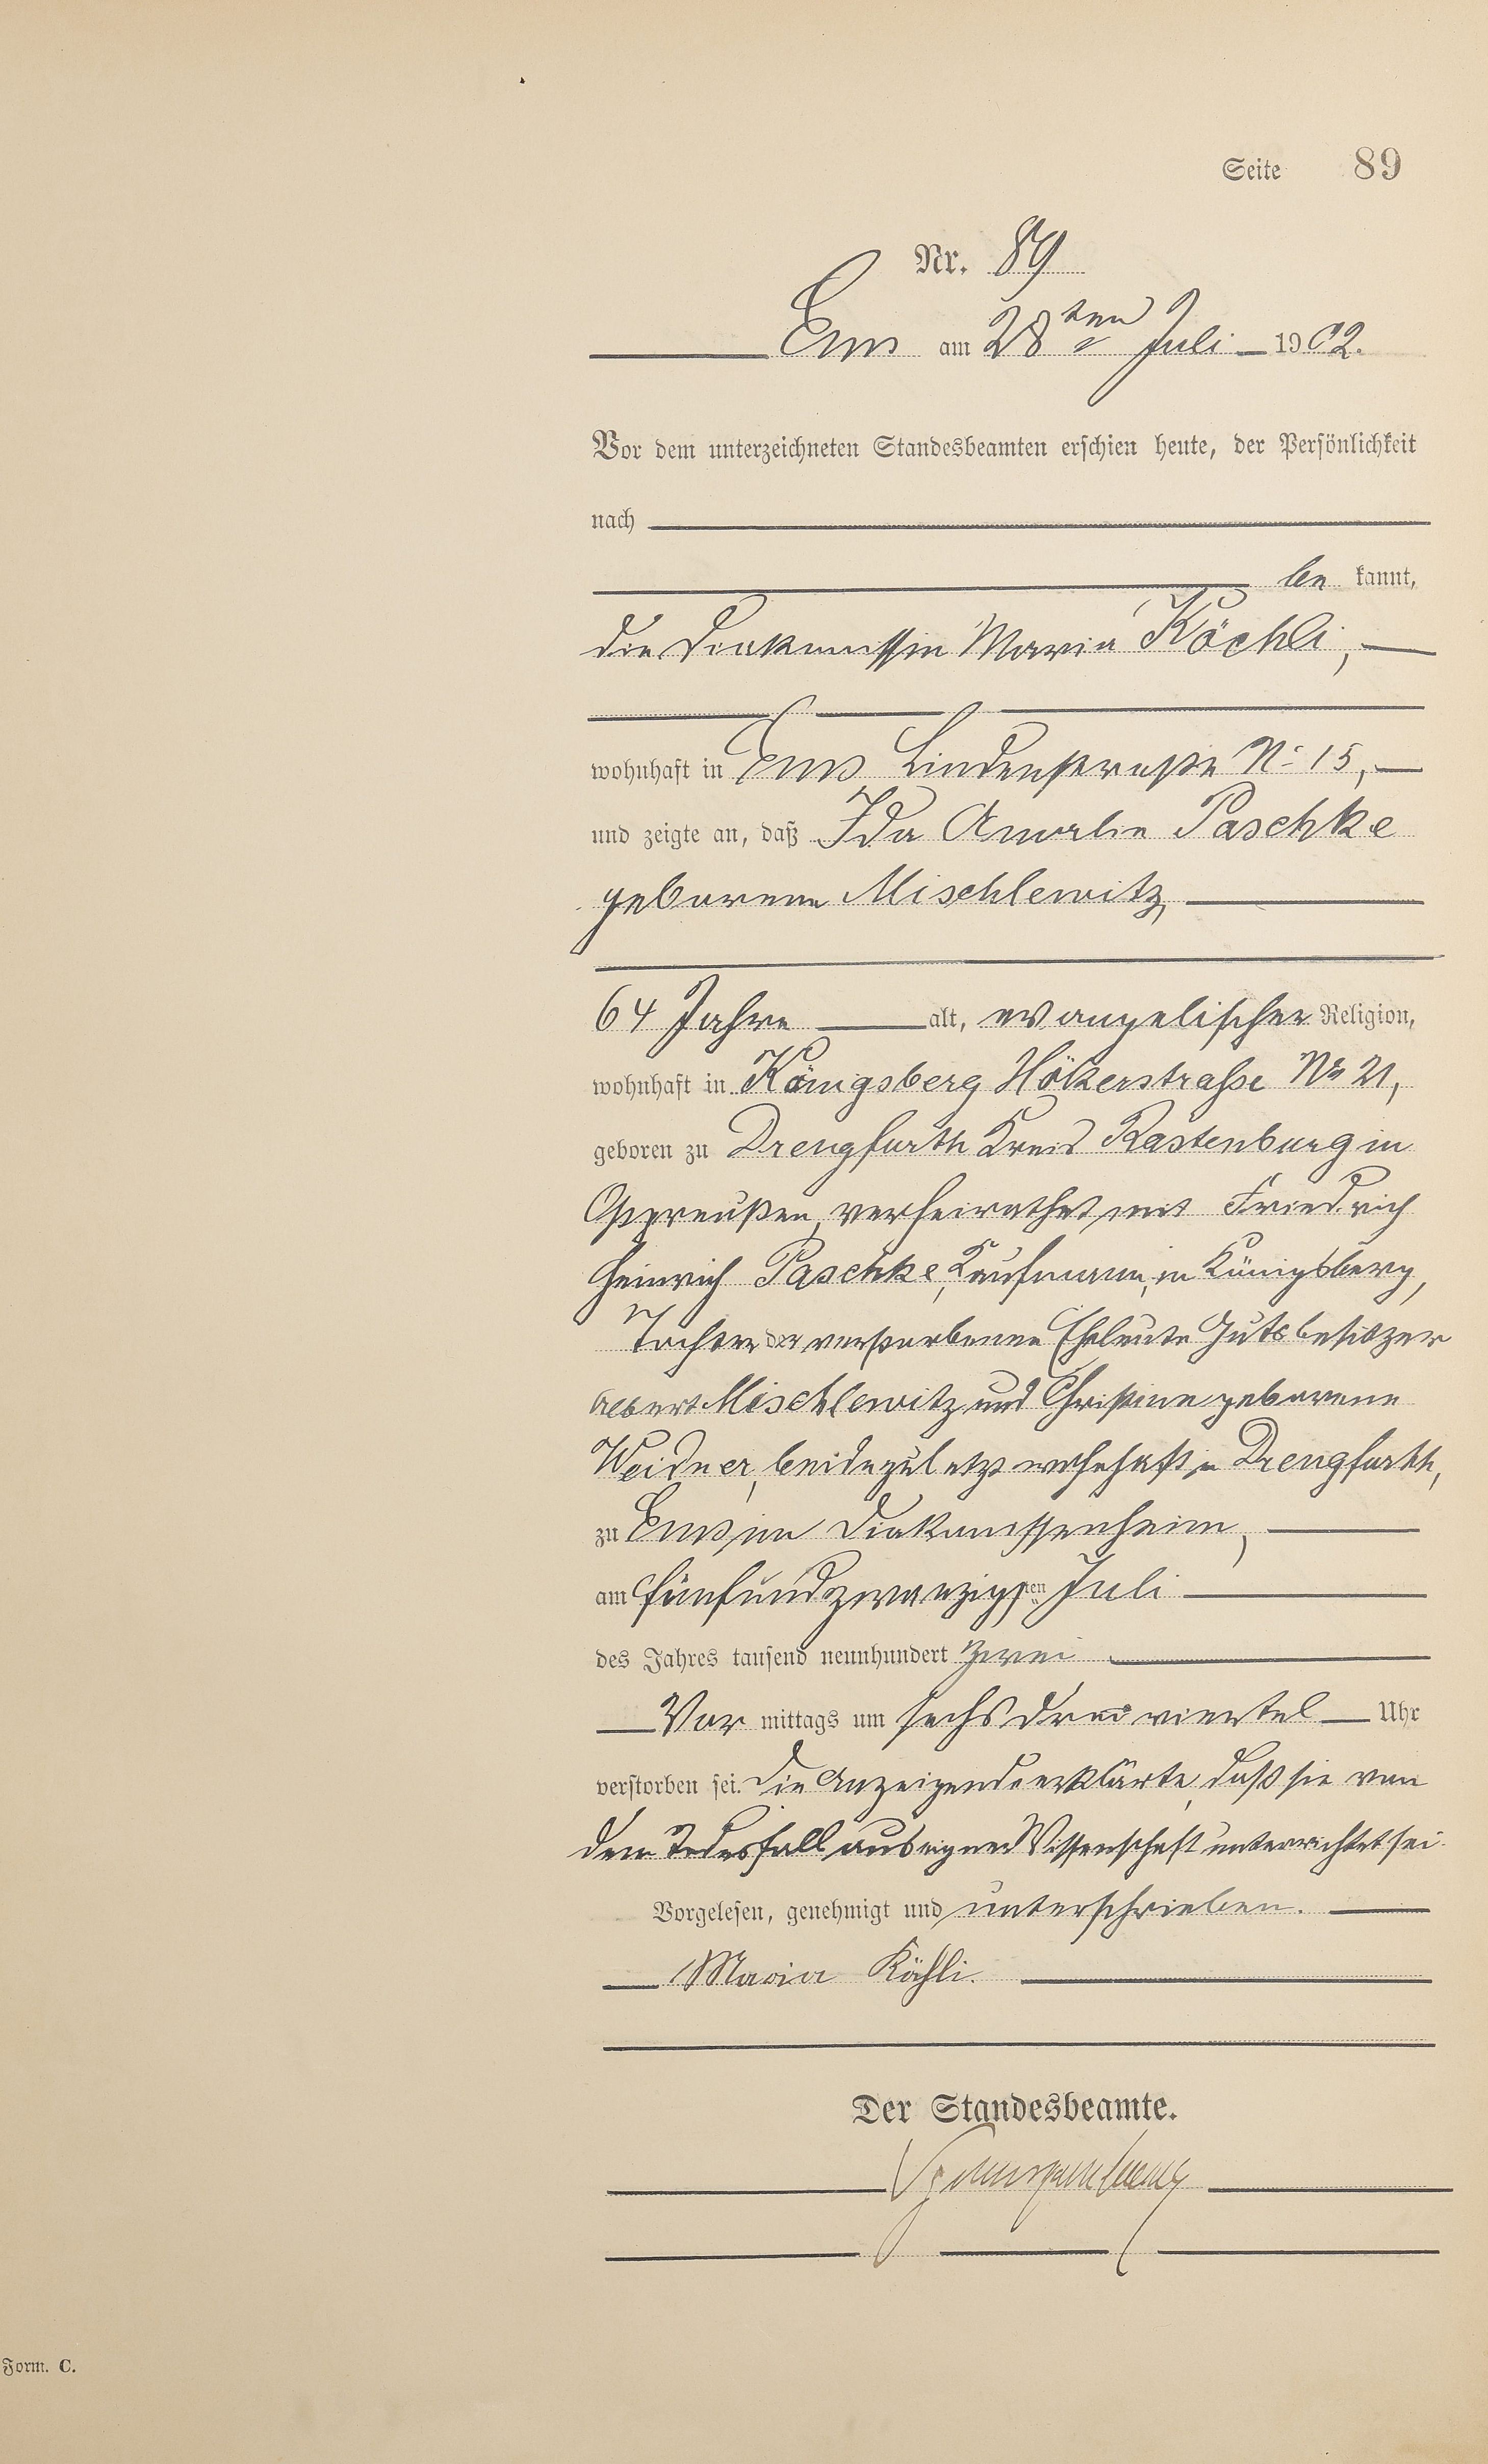 Seite 89
Nr. 89
Ems am 28ten Juli 1902.
Vor dem unterzeichneten Standesbeamten erschien heute, der Persönlichkeit
nach
be kannt,
die Diakonissin Maria Köchli,
wohnhaft in Ems Lindenstraße No 15,
und zeigte an, daß Ida Amalie Paschke
geborene Mischlewitz,
64 Jahre alt, evangelischer Religion,
wohnhaft in Königsberg Hökerstrasse No 21,
geboren zu Drengfurth Kreis Rastenburg in
Ostpreußen, verheirathet mit Friedrich
Heinrich Paschke, Kaufmann, in Königsberg,
Tochter der verstorbenen Eheleute Gutsbesitzer
Albert Mischlewitz und Christine geborene
Weidner, beide zuletzt wohnhaft in Drengfurth,
zu Ems im Diakonissenheim,
am fünfundzwanzigsten Juli
des Jahres tausend neunhundert zwei
Vor mittags um sechs drei viertel Uhr
verstorben sei. Die Anzeigende erklärte, daß sie von
dem Todesfall aus eigner Wissenschaft unterrichtet sei.
Vorgelesen, genehmigt und unterschrieben.
Maria Köchli.
Der Standesbeamte.
Form. C.